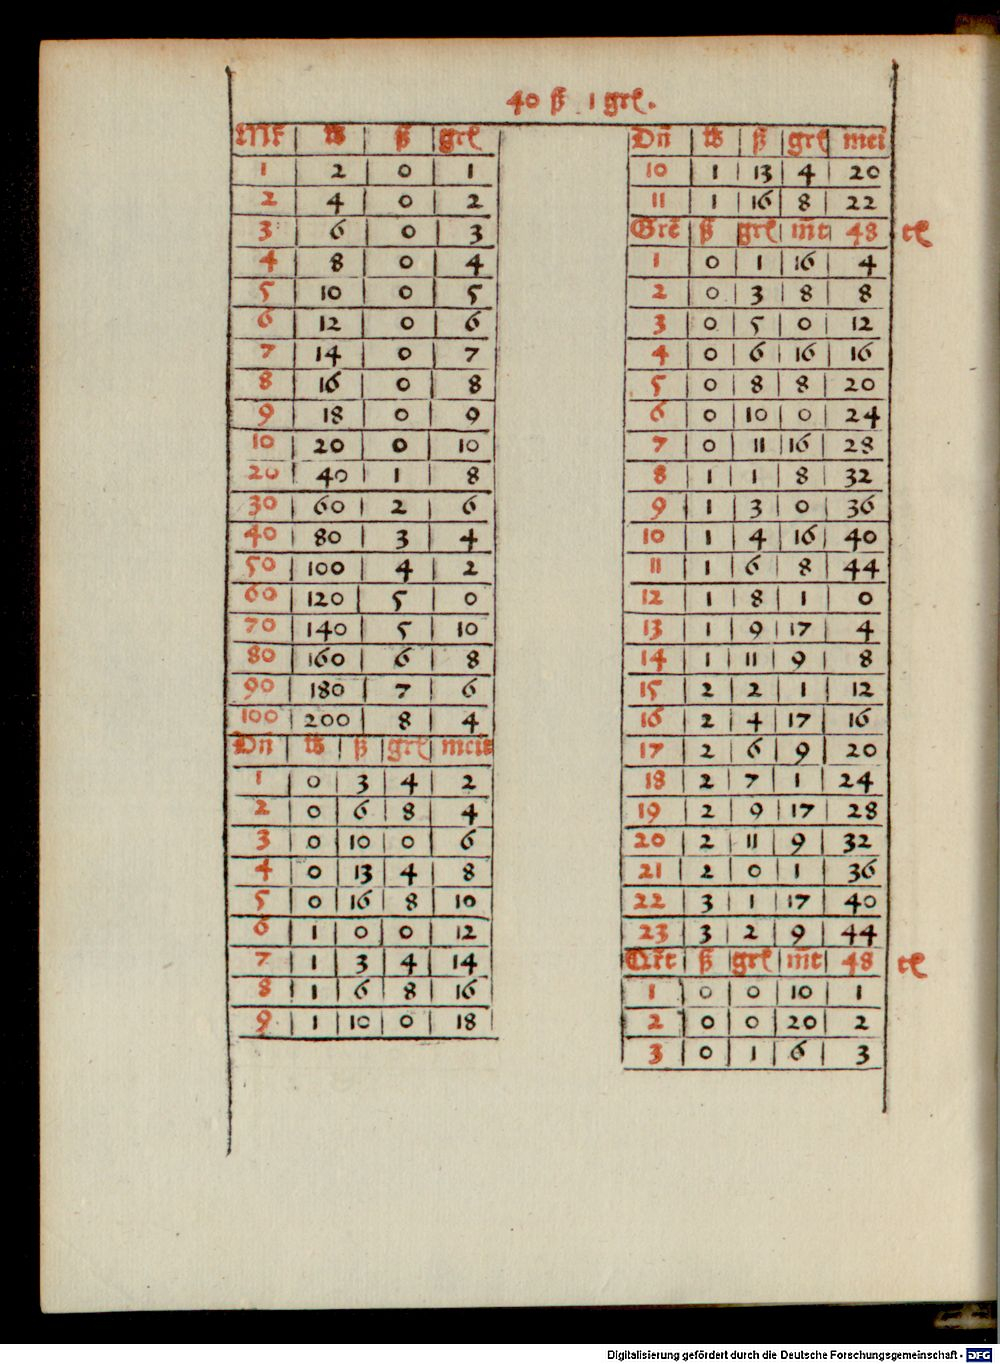 40 ß 1 grꝭ.
Mk | lb | ß | grꝭ
1 | 2 | 0 | 1
2 | 4 | 0 | 2
3 | 6 | 0 | 3
4 | 8 | 0 | 4
5 | 10 | 0 | 5
6 | 12 | 0 | 6
7 | 14 | 0 | 7
8 | 16 | 0 | 8
9 | 18 | 0 | 9
10 | 20 | 0 | 10
20 | 40 | 1 | 8
30 | 60 | 2 | 6
40 | 80 | 3 | 4
50 | 100 | 4 | 2
60 | 120 | 5 | 0
70 | 140 | 5 | 10
80 | 160 | 6 | 8
90 | 180 | 7 | 6
100 | 200 | 8 | 4
Dn̄ | lb | ß | grꝭ | mcit
1 | 0 | 3 | 4 | 2
2 | 0 | 6 | 8 | 4
3 | 0 | 10 | 0 | 6
4 | 0 | 13 | 4 | 8
5 | 0 | 16 | 8 | 10
6 | 1 | 0 | 0 | 12
7 | 1 | 3 | 4 | 14
8 | 1 | 6 | 8 | 16
9 | 1 | 10 | 0 | 18
Dn̄ | lb | ß | grꝭ | mci
10 | 1 | 13 | 4 | 20
11 | 1 | 16 | 8 | 22
Grẽ | ß | grꝭ | m̄t | 48 tꝭ
1 | 0 | 1 | 16 | 4
2 | 0 | 3 | 8 | 8
3 | 0 | 5 | 0 | 12
4 | 0 | 6 | 16 | 16
5 | 0 | 8 | 8 | 20
6 | 0 | 10 | 0 | 24
7 | 0 | 11 | 16 | 28
8 | 1 | 1 | 8 | 32
9 | 1 | 3 | 0 | 36
10 | 1 | 4 | 16 | 40
11 | 1 | 6 | 8 | 44
12 | 1 | 8 | 1 | 0
13 | 1 | 9 | 17 | 4
14 | 1 | 11 | 9 | 8
15 | 2 | 2 | 1 | 12
16 | 2 | 4 | 17 | 16
17 | 2 | 6 | 9 | 20
18 | 2 | 7 | 1 | 24
19 | 2 | 9 | 17 | 28
20 | 2 | 11 | 9 | 32
21 | 2 | 0 | 1 | 36
22 | 3 | 1 | 17 | 40
23 | 3 | 2 | 9 | 44
Qr̃t | ß | grꝭ | m̄t | 48 tꝭ
1 | 0 | 0 | 10 | 1
2 | 0 | 0 | 20 | 2
3 | 0 | 1 | 6 | 3
Digitalisierung gefördert durch die Deutsche Forschungsgemeinschaft - DFG